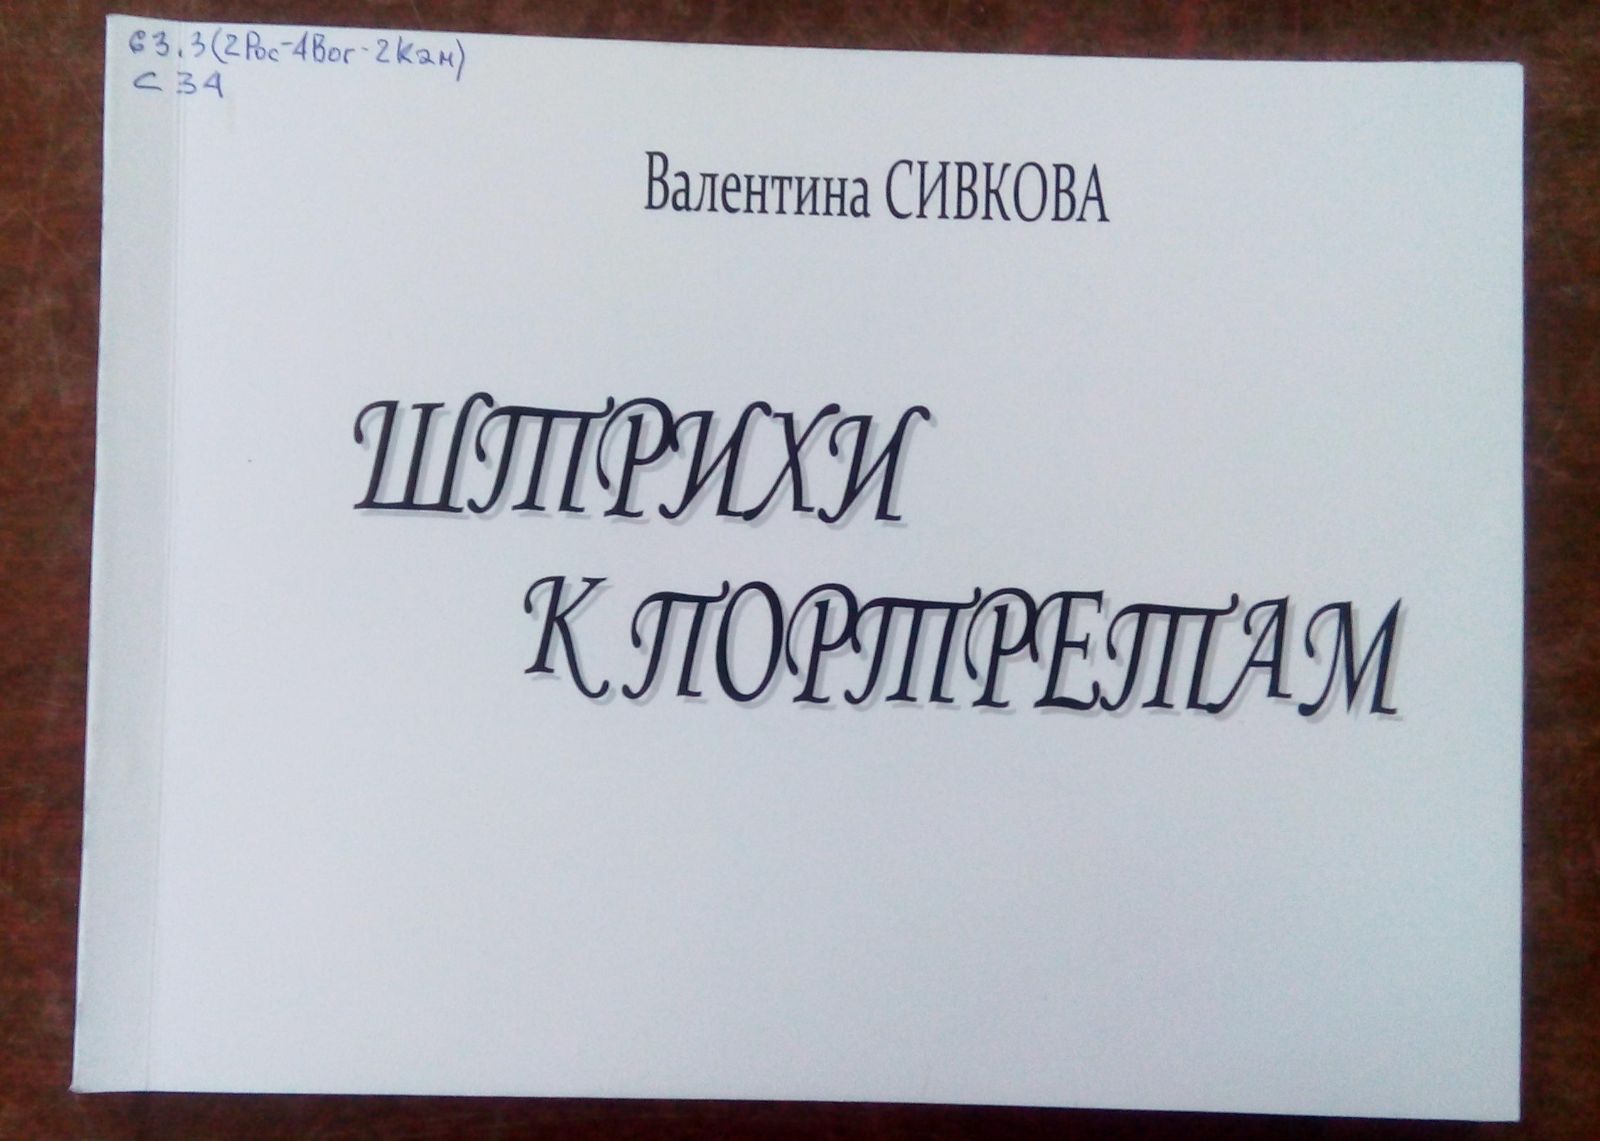 63.3(2Рос-4Вог-2Кам)
С 34
Валентина СИВКОВА
ШТРИХИ
К ПОРТРЕТАМ